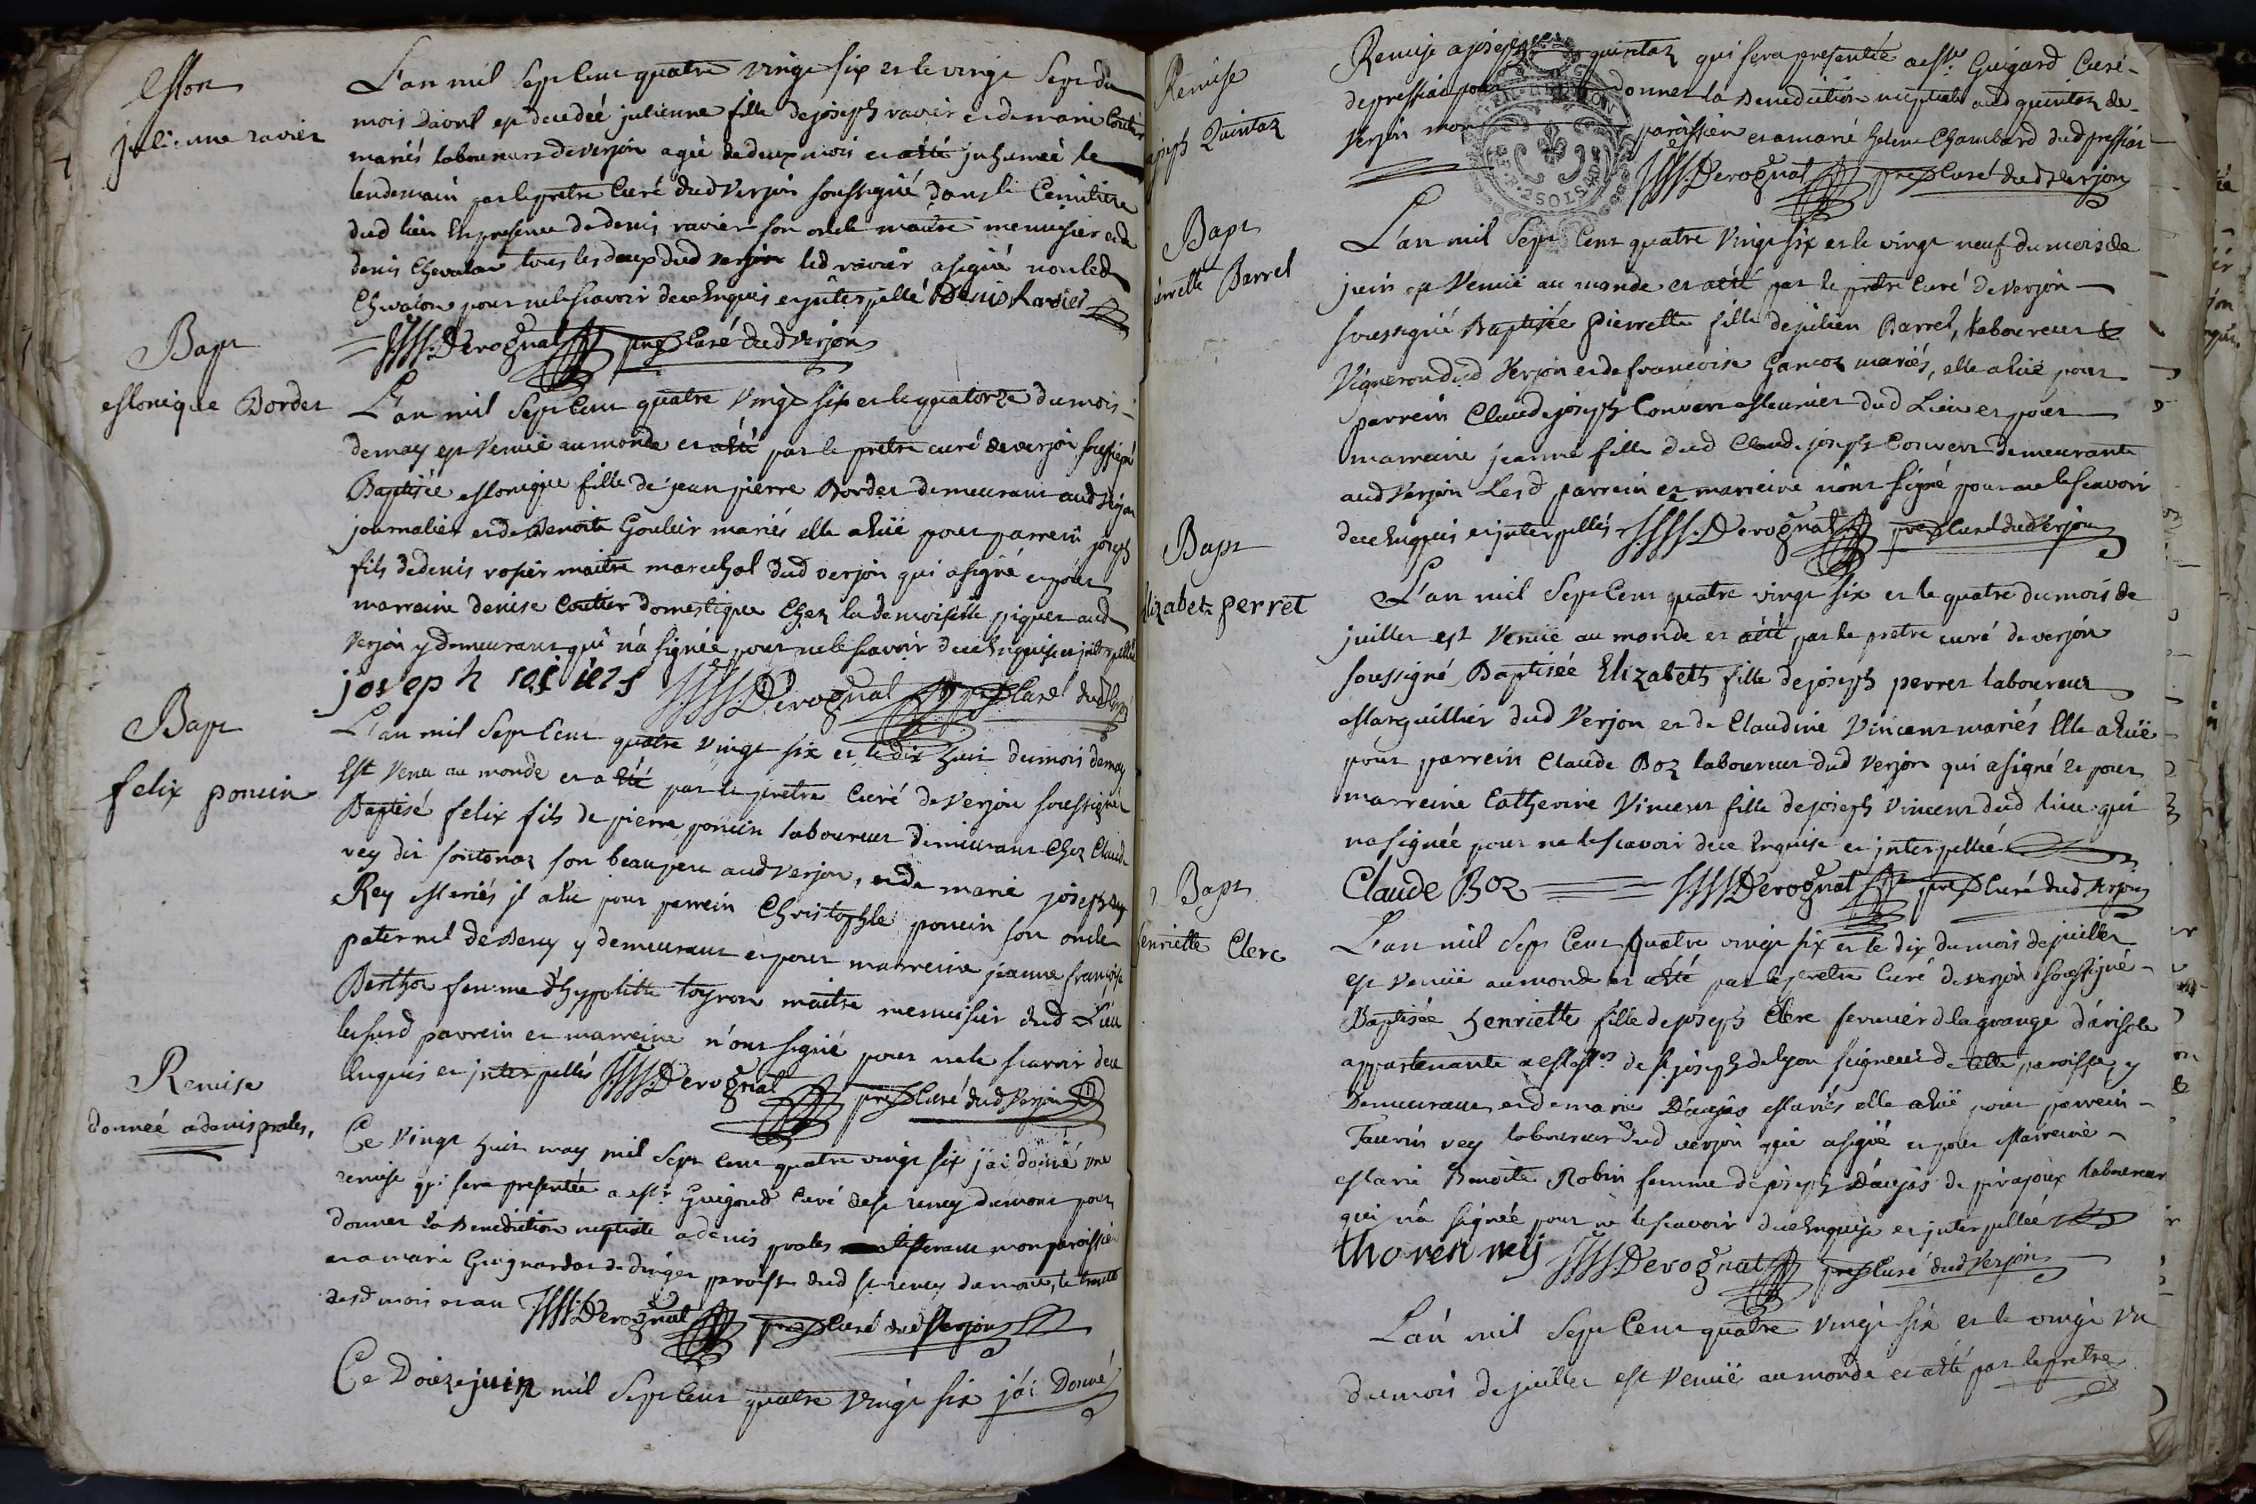 Mort
julienne ravier
L'an mil Sept Cent quatre vingt six et le vingt Sept du
mois Davril est decedeé julienne fille de joseph ravier et de marie Coutier
mariés laboureurs de verjon ageé de deux mois et a eté jnhumeé le
lendemain par le pretre Curé dud Verjon soussigné dans le Cemitiere
dud lieu En presence de denis ravier son oncle maitre menuisier et de
denis Chevalon tous les deux dud verjon led ravier a signé non led
Chevalon pour ne le scavoir de ce Enquis et jnterpellé Denis Ravier
Derognat pretre Curé dud verjon
Bapt
Monique Bordet
L'an mil Sept Cent quatre Vingt six et le quatorze du mois
de may est Venue au monde et a eté par le pretre curé de verjon soussigné
Baptisée Monique fille de jean pierre Bordet demeurant aud Verjon
journalier et de Benoite Goulier mariés elle a Eüe pour parrein joseph
fils de denis rosier maitre marechal dud verjon qui a signé et pour
marreine denise Coutier domestique Chez la demoiselle piquet aud
Verjon y demeurant qui n'a signée pour ne le scavoir de ce Enquise et jnterpellée
joseph rosiers Derognat pretre Curé dud Verjon
Bapt
felix poncin
L'an mil Sept Cent quatre vingt six et le dix huit du mois de may
Est Venu au monde et a Eté par le pretre Curé de Verjon soussigné
Baptisé felix fils de pierre poncin laboureur demeurant Chez Claude
rey dit fontonaz son beaupere aud verjon, et de marie josephe
Rey Mariés jl a Eu pour parrein Christophle poncin son oncle
paternel de Beny y demeurant et pour marreine jeanne françoise
Berthot femme d'hypolitte toyron maitre menuisier dud Lieu
lesusd parrein et marreine n'ont signé pour ne le scavoir de ce
Enquis et jnterpellés Derognat pretre Curé dud Verjon
Remise
donneé a denis prales,
Ce Vingt huit may mil Sept Cent quatre vingt six j'ai donné une
remise qui sera presentée a Mr Guigoud Curé de St remy dumont pour
donner la Benediction nuptiale a denis prales mon paroissien
et a marie Guignardat de dingier paroisse dud St remy dumont, le trente
desd mois et an Derognat pretre Curé dud Verjon
Ce Douze juin mil Sept Cent quatre Vingt six j'ai Donné
Remise
a joseph Quintaz
Remise a joseph quintaz qui sera presentée a Mr Guigard Curé
de pressiat pour donner la Benediction nuptiale aud quintaz de
Verjon mon paroissien et a marie helene Chambard dud pressiat
Derognat pretre Curé dud Verjon
Bapt
pierrette Barrel
L'an mil Sept Cent quatre Vingt six et le vingt neuf du mois de
juin est Venüe au monde et a eté par le pretre Curé de verjon
soussigné Baptisée pierrette fille de julien Barrel, laboureur &
Vigneron dud Verjon et de francoise Gancoz mariés, elle a Eüe pour
parrein Claude joseph Convert Meunier dud Lieu et pour
marreine jeanne fille dud Claude joseph Convert demeurante
aud Verjon Lesd parrein et marreine n'ont signé pour ne le scavoir
de ce Enquis et jnterpellés Derognat pretre Curé dud Verjon
Bapt
Elizabeth perret
L'an mil Sept Cent quatre vingt six et le quatre du mois de
juillet est Venüe au monde et a eté par le pretre curé de verjon
soussigné, Baptisée Elizabeth fille de joseph perret laboureur
Marguillier dud Verjon et de Claudine Vincent mariés Elle a Eüe
pour parrein Claude Boz laboureur dud Verjon qui a signé et pour
marreine Catherine Vincent fille de joseph Vincent dud lieu qui
n'a signée pour ne le scavoir de ce Enquise et jnterpellée
Claude Boz Derognat pretre Curé dud Verjon
Bapt
henriette Clerc
L'an mil Sept Cent Quatre vingt six et le dix du mois de juillet
est venüe au monde et a eté par le pretre Curé de verjon soussigné
Baptisée henriette fille de joseph Clerc fermier d la grange d'arisole
appartenante a Mrs de St joseph de lyon seigneur de cette paroisse y
Demeurant et de marie Daujas Mariés elle a Eüe pour parrein
Taurin rey laboureur dud verjon qui a signé et pour Marreine
Marie Benoite Robin femme de joseph Daujas de pirajoux laboureur
qui n'a signée pour ne le scavoir de ce Enquise et jnterpellée
thoren reij Derognat pretre Curé dud Verjon
L'an mil Sept Cent quatre vingt six et le vingt un
du mois de juillet est Venüe au monde et a eté par le pretre